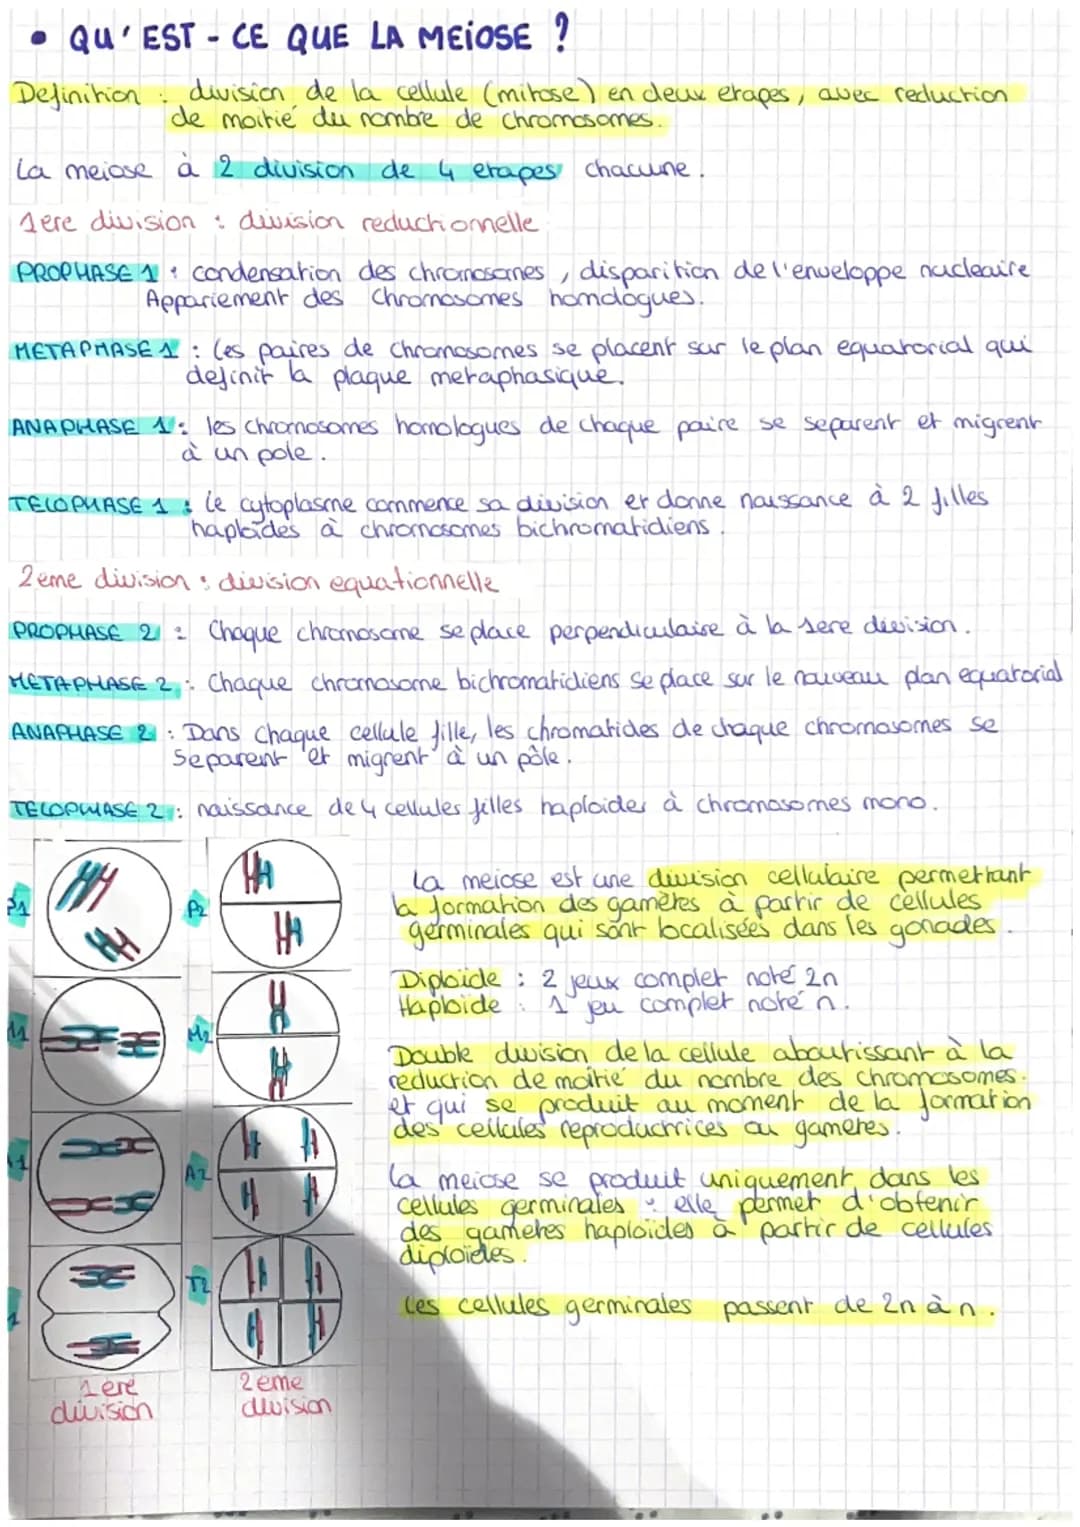 • QU'EST-CE QUE LA MEiOSE ?
Definition : division de la cellule (mitose) en deux etapes, avec reduction
de moitié du nombre de chromosomes.
La meiose à 2 division de 4 etapes chacune.
1ere division : division reductionnelle
PROPHASE 1 : condensation des chromosomes, disparition de l'enveloppe nucleaire
Appariement des Chromosomes homologues.
METAPHASE 1 : les paires de chromosomes se placent sur le plan equatorial qui
definit la plaque metaphasique.
ANAPHASE 1 : les chromosomes homologues de chaque paire se separent et migrent
à un pole.
TELOPHASE 1 : le cytoplasme commence sa division et donne naissance à 2 filles
haploides à chromosomes bichromatidiens.
2eme division : division equationnelle
PROPHASE 2 : Chaque chromosome se place perpendiculaire à la 1ere division.
METAPHASE 2 : Chaque chromosome bichromatidiens se place sur le nouveau plan equatorial
ANAPHASE 2 : Dans chaque cellule fille, les chromatides de chaque chromosomes se
Separent et migrent à un pôle.
TELOPHASE 2 : naissance de 4 cellules filles haploides à chromosomes mono.
P1
P2
M1
M2
A1
A2
T2
1ere
division
2eme
division
La meiose est une division cellulaire permettant
la formation des gamètes à partir de cellules
germinales qui sont localisées dans les gonades.
Diploïde : 2 jeux complet noté 2n
Haploïde : 1 jeu complet noté n.
Double division de la cellule aboutissant à la
reduction de moitié du nombre des chromosomes.
et qui se produit au moment de la formation
des cellules reproductrices ou gametes.
La meiose se produit uniquement dans les
cellules germinales : elle permet d'obtenir
des gametes haploïdes à partir de cellules
diploïdes.
Les cellules germinales passent de 2n à n.